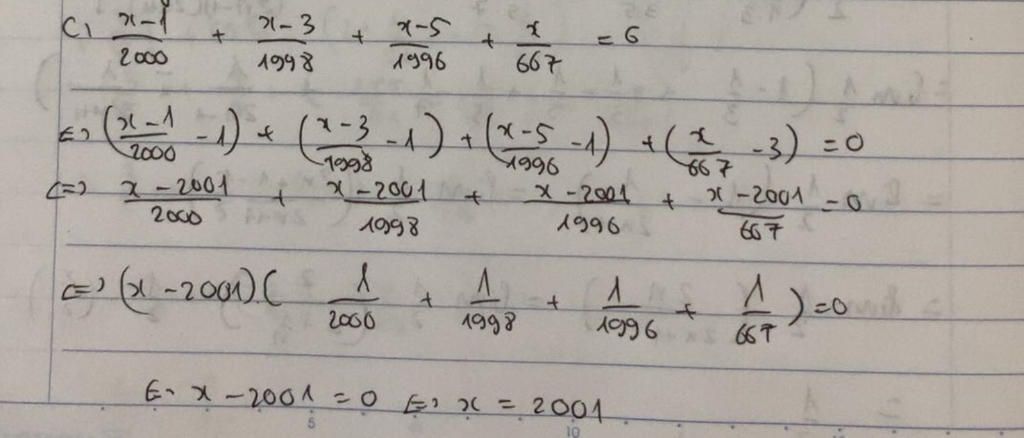 C, (x-1)/2000 + (x-3)/1998 + (x-5)/1996 + x/667 = 6
<=> ((x-1)/2000 - 1) + ((x-3)/1998 - 1) + ((x-5)/1996 - 1) + (x/667 - 3) = 0
<=> (x-2001)/2000 + (x-2001)/1998 + (x-2001)/1996 + (x-2001)/667 = 0
<=> (x-2001)(1/2000 + 1/1998 + 1/1996 + 1/667) = 0
<=> x - 2001 = 0 <=> x = 2001
5 10